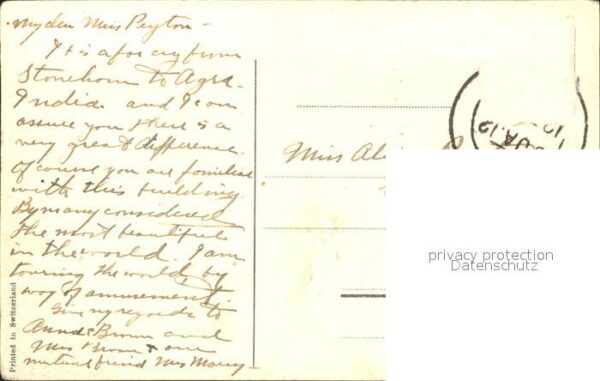 My dear Miss Peyton -
It is a far cry from
Stonehom to Agra -
India and I can
assure you there is a
very great difference.
Of course you are familiar
with this building.
By many considered
the most beautiful
in the world. I am
touring the world by
way of amusement.
Give my regards to
Anna Brown and
Mrs Brown + our
mutual friend Mrs
Printed in Switzerland
Miss
privacy protection
Datenschutz